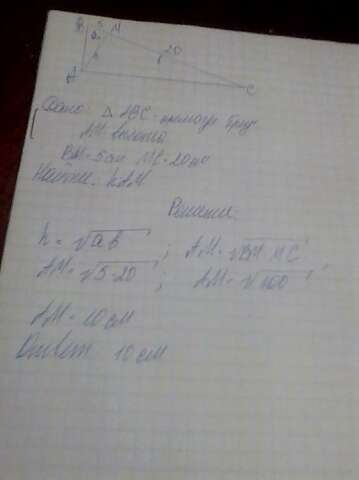 B 5 M
20
h
A
C
Дано: △ ABC - прямоуг.
AM высота
BM = 5 см MC = 20 см
Найти: h AM
Решение:
h = √ab ; AM = √BM·MC
AM = √5·20 ; AM = √100
AM = 10 см
Ответ 10 см